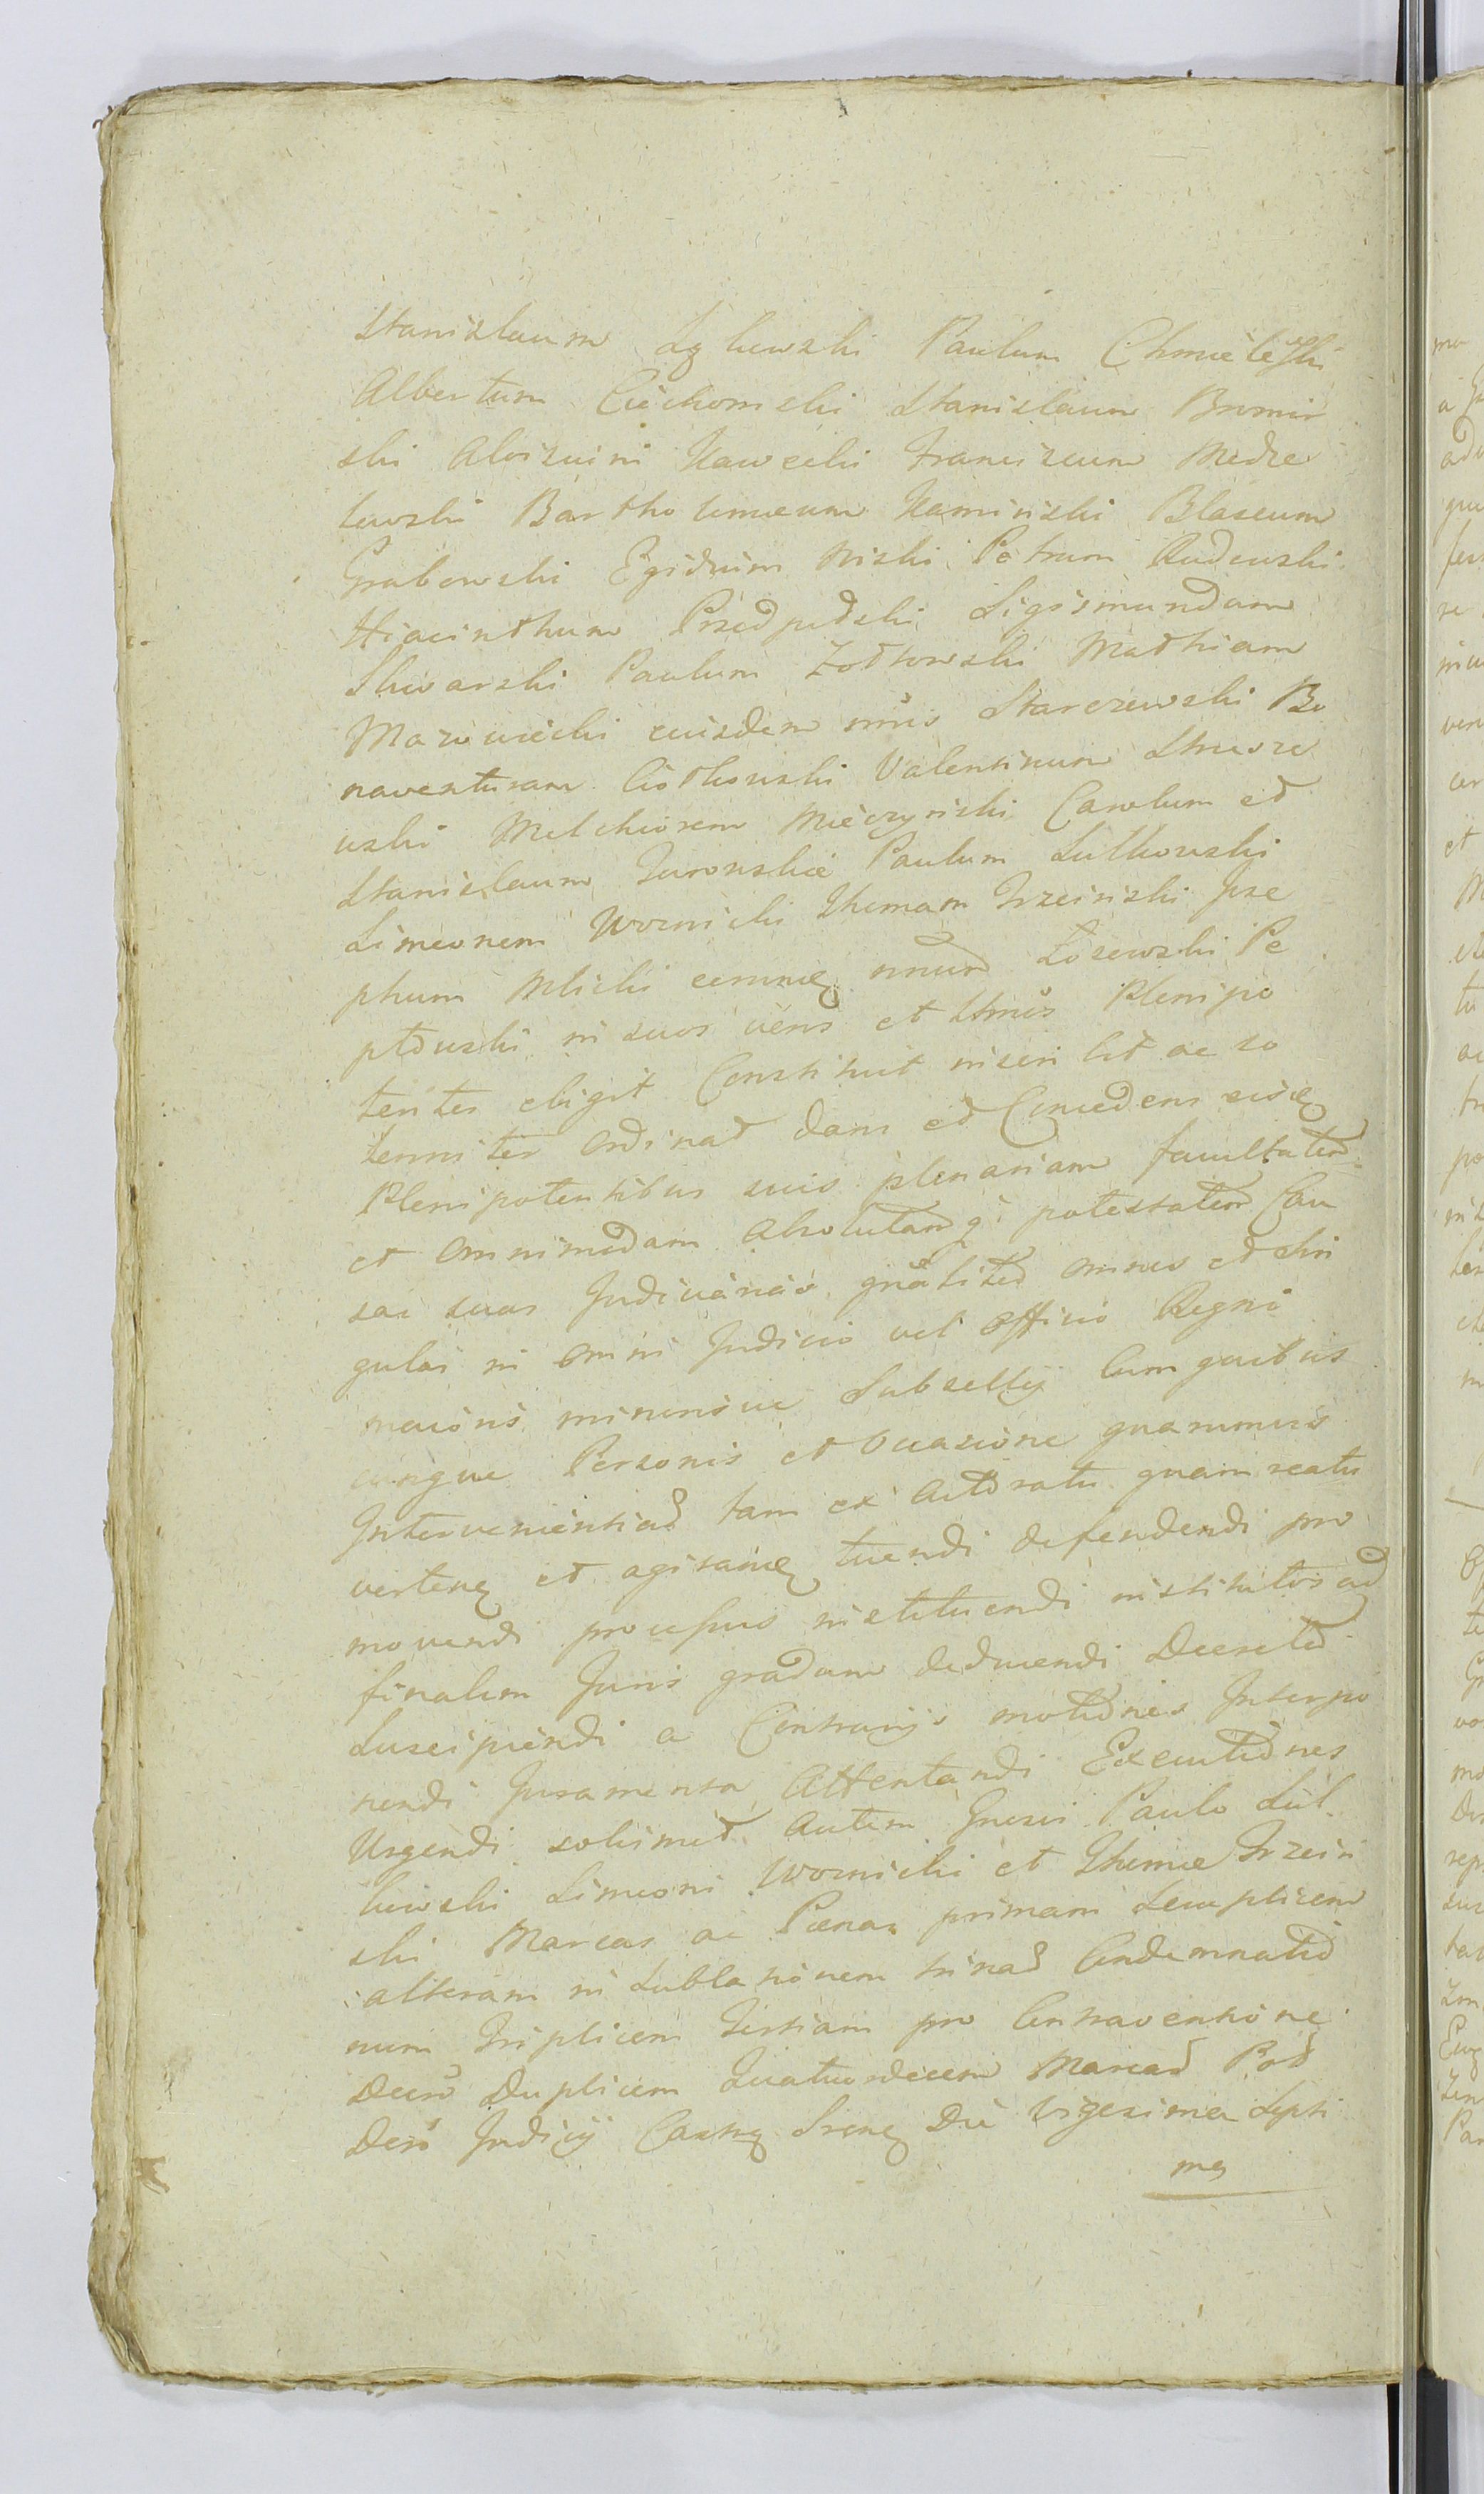 Stanislaum Zglewski Paulum Chmielewski
Albertum Ciechomski Stanislaum Bromir
ski Aloisium Kawecki Franciscum Madze
lewski Bartholomæum Kaminski Blasium
Grabowski Egidium Niski Petrum Rudowski
Hiacinthum Przedpełski Sigismundum
Skwarski Paulum Zołtowski Mathiam
Mazowiecki eiusdem nŏis Starczewski Bo
naventuram Ciołkowski Valentinum
uski Melchiorem Mieczynski Carolum et
Stanislaum Turowskie Paulum Lutkowski
Simeonem Woznicki Thomam Trzcinski Jose
phum Mlicki eumq Łosewski Pe
płowski in suos veros et Plenipo
tentes eligit Constituit inscribit ac so
lenniter ordinat dans et Concedens eisdq
Plenipotentibus suis plenariam facultatem
et omnimodam absolutamq potestatem Cau
sas suas Judiciarias gnaliter omnes et sin
gulas in omni Judicio vel Officio Regni
maioris minorisve Subsellij Cum quibus
cunque Personis et Occasione quarumvis
Interveniendas tam ex Actoratu quam reatu
verteñ et agitañ tuendi defendendi pro
movendi processus instituendi institutos ad
finalem Juris gradum deducendi Decreta
Suscipiendi a Contrarijs motiones Interpo
nendi Juramenta Attentandi Executiones
Urgendi solumet autem Gnosi Paulo Lut
kowski Simeoni Woznicki et Thomæ Trzcin
ski Marcas ac Pænas primam Sexuplicem
alteram in Sublationem trinas Condemnatio
num Triplicem Tertiam pro Contraventione
Decro Duplicem Quatuordecem Marcas Post
Decrō Judicij Casteñ Sreneñ Die Vigesima Septi
ma